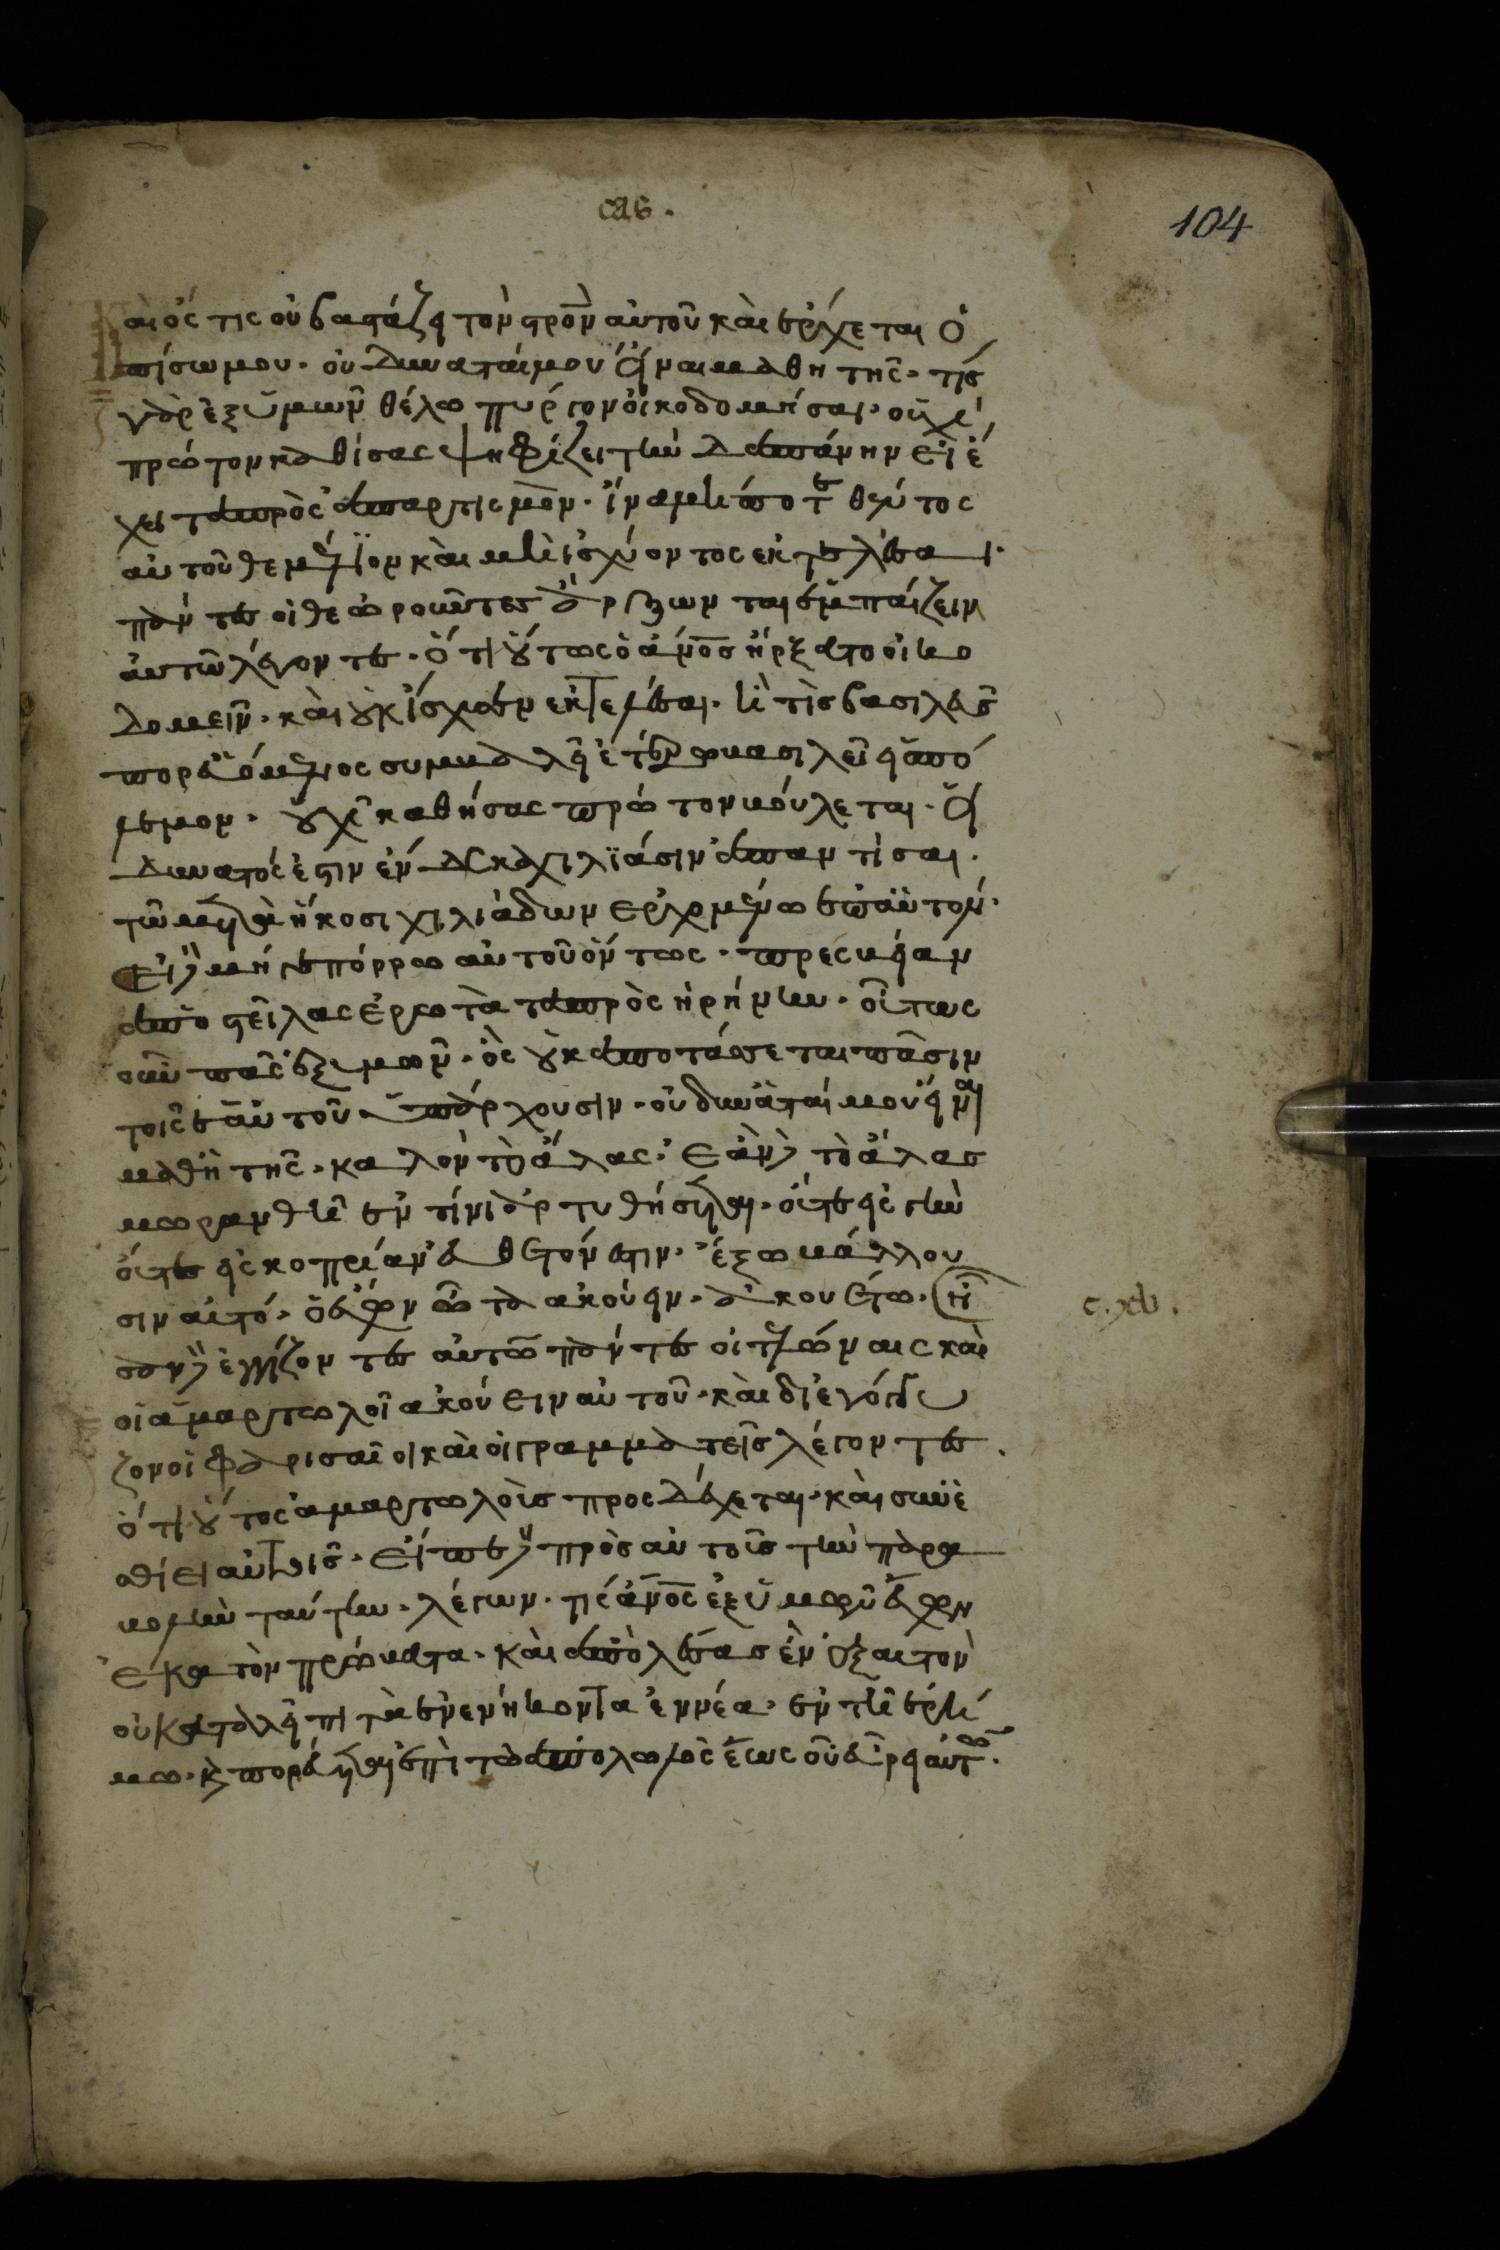 σλϛ.
104
Καὶ ὅς τις οὐ βαστάζει τὸν στρὸν αὐτοῦ καὶ ἔρχεται ὀ
πίσω μου. οὐ δύναταί μου εἶναι μαθητής. τίς
γὰρ ἐξ ὑμῶν θέλω πύργον οἰκοδομῆσαι. οὐχὶ
πρῶτον καθίσας ψηφίζει τὴν δαπάνην εἰ ἔ
χει τὰ πρὸς ἀπαρτισμὸν. ἵνα μήποτε θέντος
αὐτοῦ θεμέλιον καὶ μὴ ἰσχύοντος ἐκτελέσαι.
πάντες οἱ θεωροῦντες ἄρξωνται ἐμπαίζειν
αὐτῶ λέγοντες. ὅτι οὗτως ὁ ἄνος ἤρξατο οἰκο
δομεῖν. καὶ οὐκ ἴσχυσεν ἐκτελέσαι. ἢ τὶς βασιλεῦς
πορευόμενος συμβαλεῖ ἑτέρω βασιλεῖ εἰς πό
λεμον. οὐχὶ καθήσας πρῶτον βούλεται. εἰ
δυνατός ἐστιν ἐν δέκα χιλϊάσιν ἀπαντῖσαι.
τῶ μετὰ ἤκοσι χιλιάδων ἐρχομένω ἐπ' αὐτόν.
εἰ δὲ μήγε πόρρω αὐτοῦ ὄντως. πρεσβείαν
ἀποστεῖλας ἐρωτὰ τὰ πρὸς ἠρήνην. οὕτως
οὖν πᾶς ἐξ ὑμῶν. ὃς οὐκ ἀποτάσσεται πᾶσιν
τοῖς ἑαυτοῦ ὑπάρχουσιν. οὐ δύναταί μου εἶναι
μαθητής. καλὸν τὸ ἅλας. ἐὰν δὲ τὸ ἅλας
μωρανθῆ ἐν τίνι ἀρτυθήσεται. οὔτε εἰς γὴν
οὔτε εἰς κοπρίαν εὔθετόν ἐστιν. ἔξω βάλλου
σιν αὐτό. ὁ ἔχων ὦτα ἀκούειν. ἀκουέτω. ἦ
σαν δὲ ἐγγίζοντες αὐτῶ πάντες οἱ τελώναις καὶ
οἱ ἁμαρτωλοῖ ἀκούειν αὐτοῦ. καὶ διεγόγγυ
ζον οἱ φαρισαῖοι καὶ οἱ γραμματεῖς λέγοντες.
ὅτι οὗτος ἁμαρτωλοὶς προσδέχεται. καὶ συνε
σθίει αὐτοῖς. εἶπε δὲ πρὸς αὐτοῖς τὴν παρα
βολὴν ταύτην. λέγων. τίς ἄνος ἐξ ὑμῶν ἔχων
ἑκατὸν πρόβατα. καὶ ἀπολέσας ἓν ἐξ αὐτὸν
οὐ καταλείπι τὰ ἐνενήκοντα ἐννέα. ἐν τῆ ἐρή
μω. καὶ πορεύεται ἐπὶ τὸ ἀπολωλὸς ἕως οὗ εὕρει αὐτὸ.